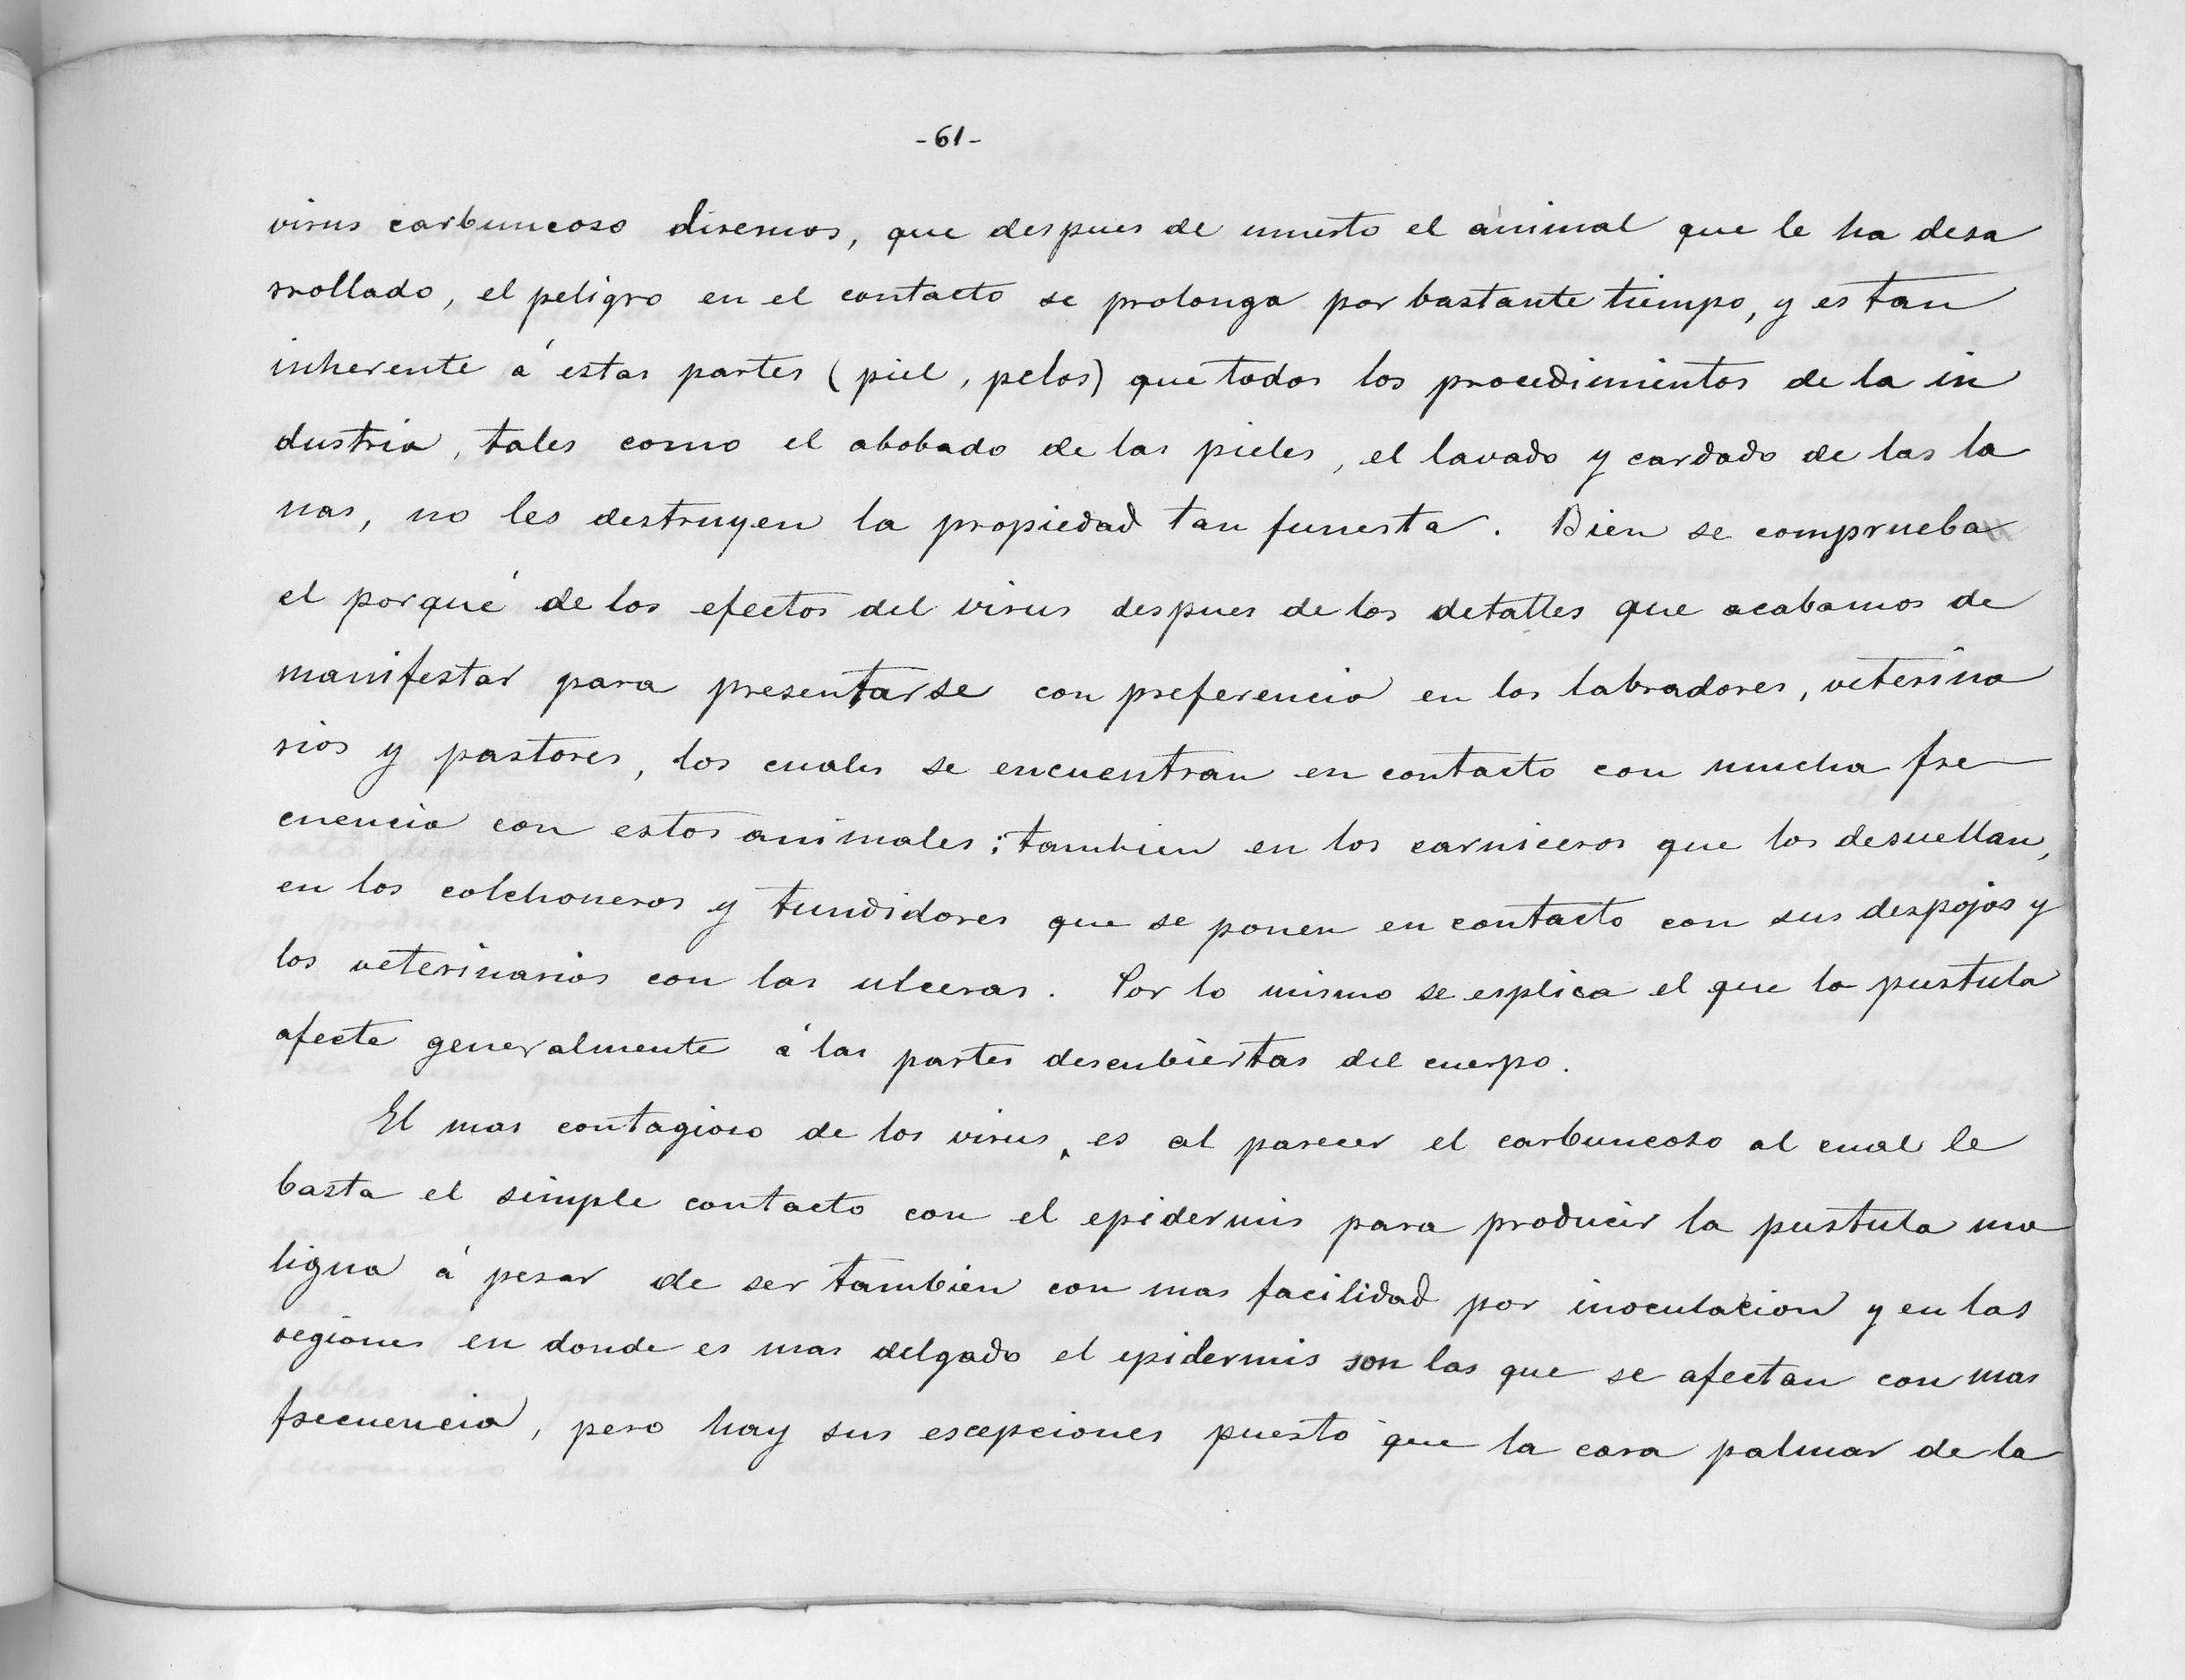 -61-
virus carbuncoso diremos, que despues de muerto el animal que le ha desa
rrollado, el peligro en el contacto se prolonga por bastante tiempo, y es tan
inherente á estas partes (piel, pelos) que todos los procedimientos de la in
dustria, tales como el abobado de las pieles, el lavado y cardado de las la
nas, no les destruyen la propiedad tan funesta. Bien se comprueba
el porqué de los efectos del virus despues de los detalles que acabamos de
manifestar para presentarse con preferencia en los labradores, veterina
rios y pastores, los cuales se encuentran en contacto con mucha fre
cuencia con estos animales; tambien en los carniceros que los desuellan,
en los colchoneros y tundidores que se ponen en contacto con sus despojos y
los veterinarios con las ulceras. Por lo mismo se esplica el que la pustula
afecte generalmente á las partes descubiertas del cuerpo.
El mas contagioso de los virus, es al parecer el carbuncoso al cual le
basta el simple contacto con el epidermis para producir la pustula ma
ligna á pesar de ser tambien con mas facilidad por inoculacion y en las
regiones en donde es mas delgado el epidermis son las que se afectan con mas
frecuencia, pero hay sus escepciones puesto que la cara palmar de la